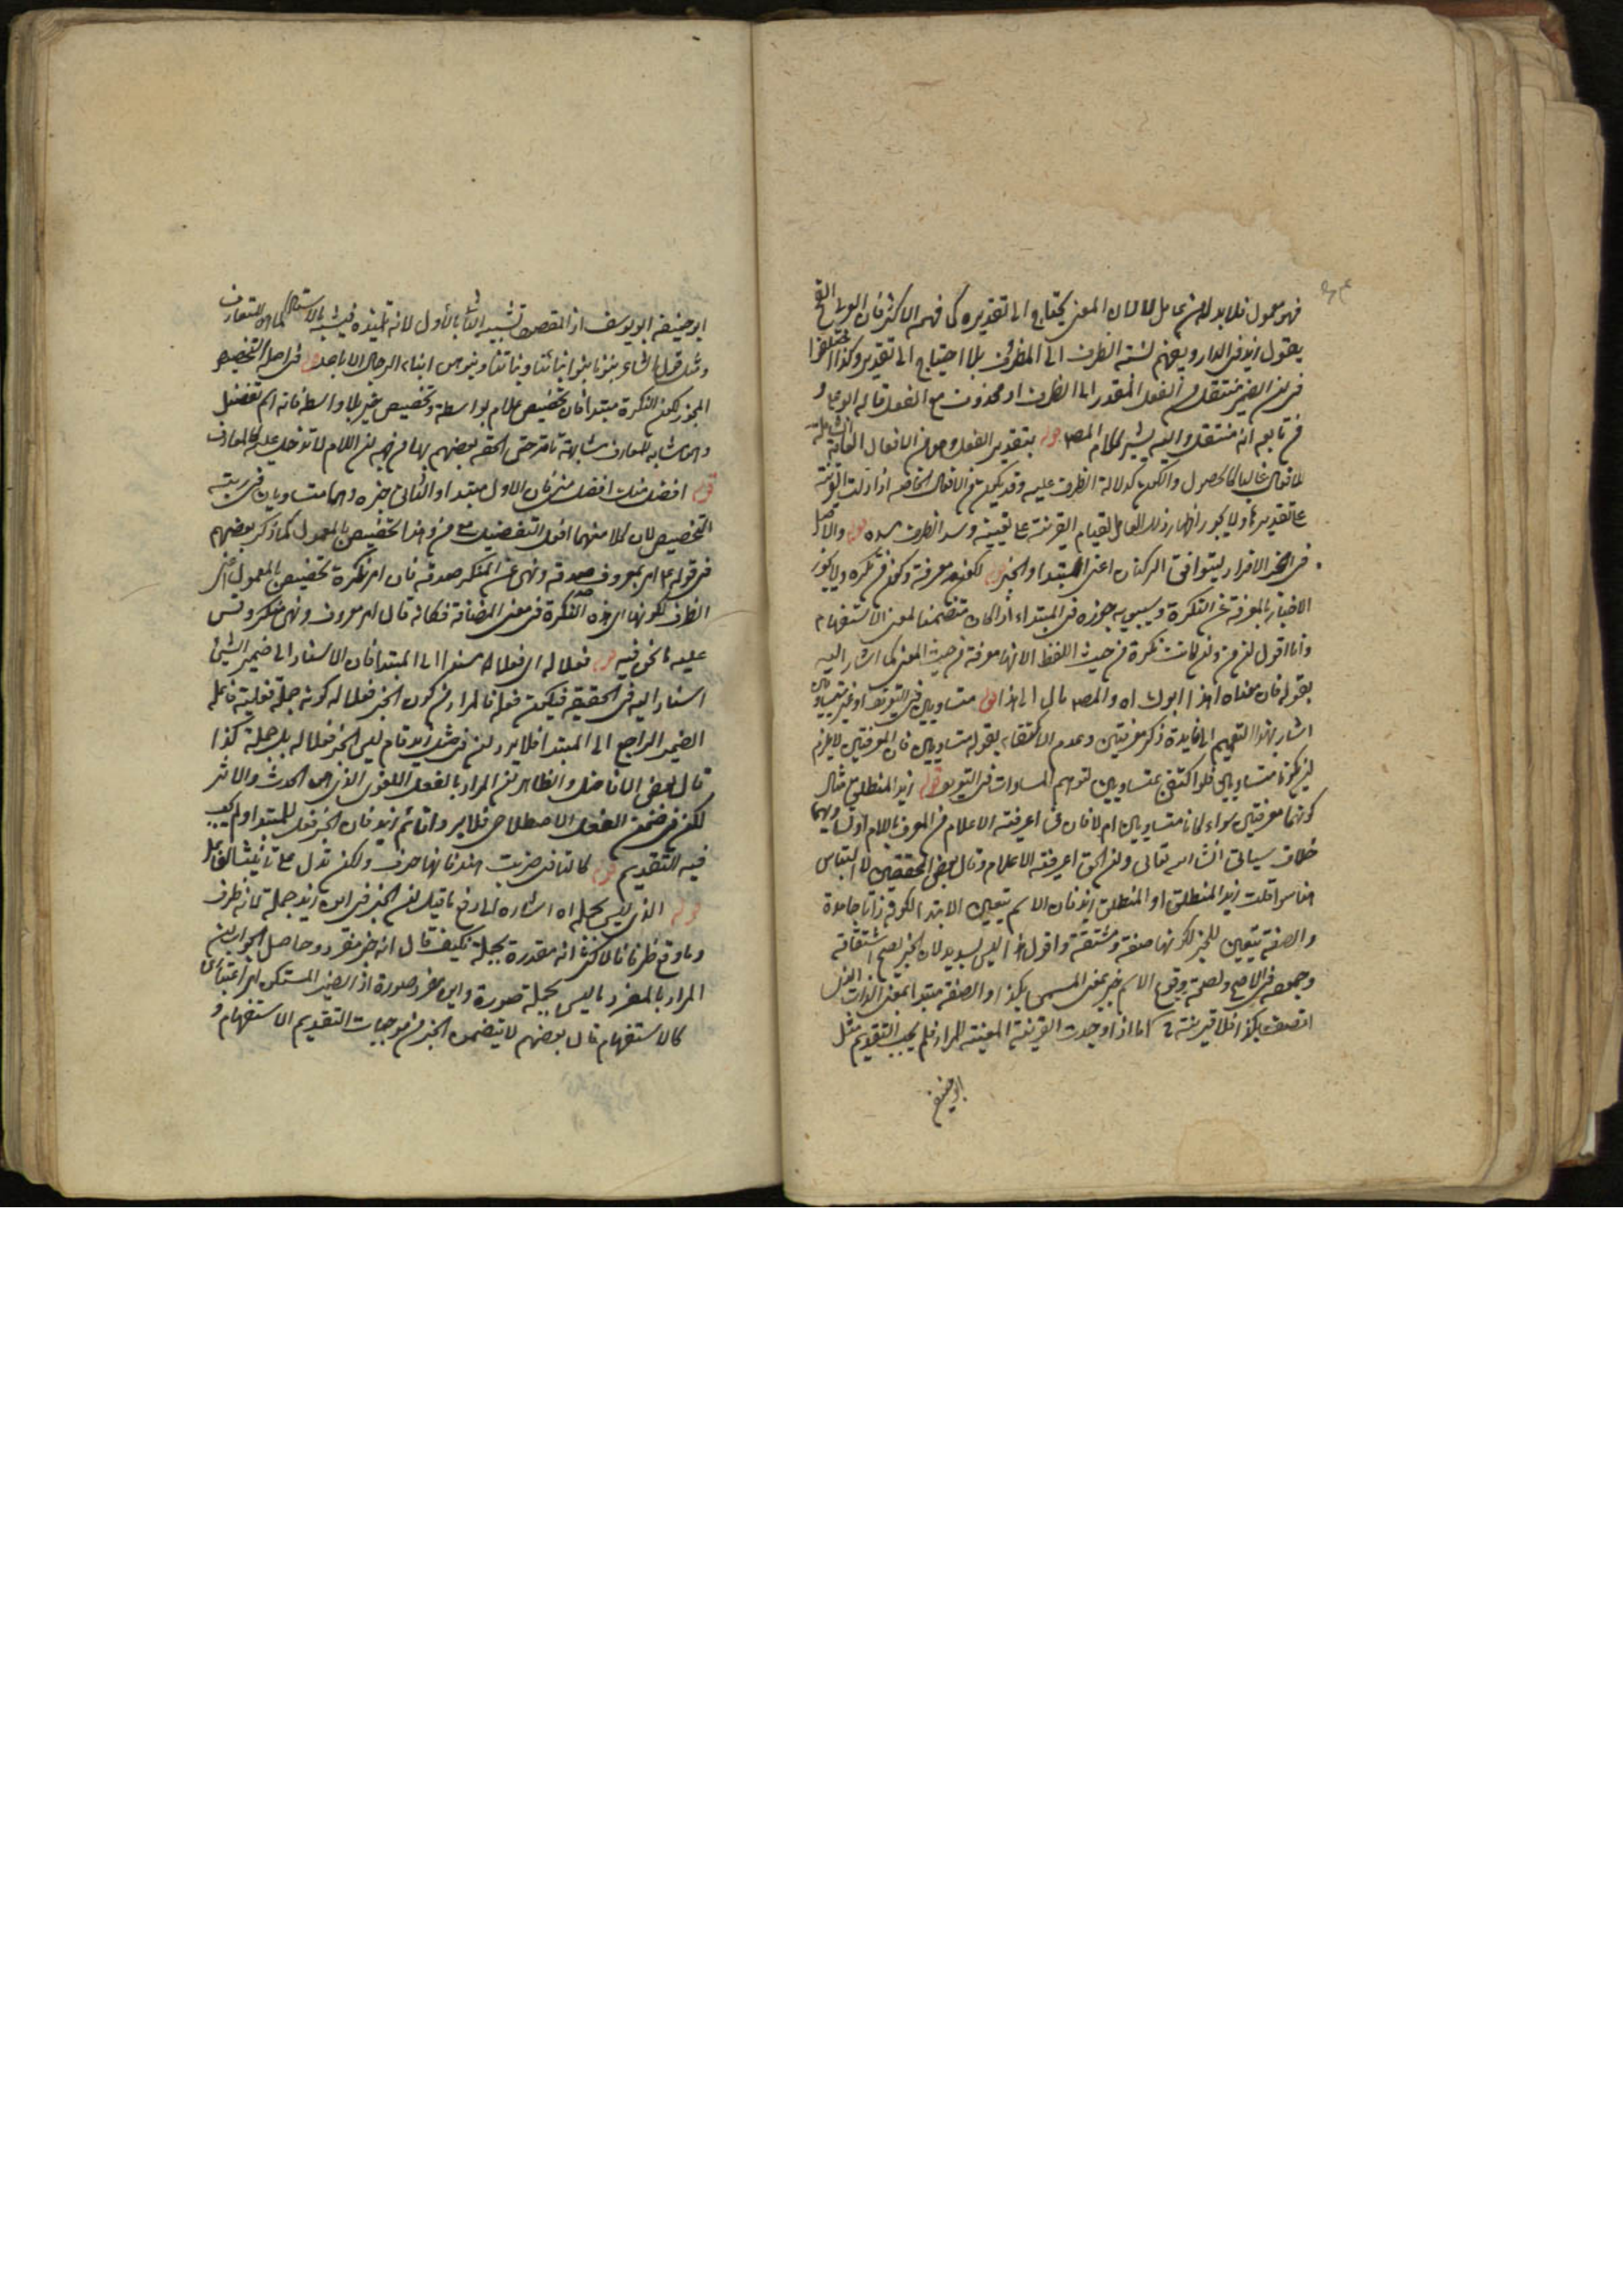 فهو معمول فلا بد له من عامل لا لان المعنى يحتاج الى تقديره كما فهم الاكثر فان العربى القح
يقول زيد فى الدار ويفهم نسبة الظرف الى المظروف بلا احتياج الى تقدير وكذا اختلفوا
فى ان الضمير منتقل من الفعل المقدر الى الظرف او محذوف مع الفعل قاله ابو على و
من تابعه انه منتقل واليه يشير كلام المصـ قوله بتقدير الفعل وهو من الافعال العامة الشاملة
للافعال غالبا كالحصول والكون كدلالة الظرف عليه وقد يكون من الافعال الخاصة اذا دلت القرينة
على تقديره ولا يجوز اظهار ذلك العامل لقيام القرينة على تعيينه وسد الظرف مسده قوله والاصل
فى الخبر الافراد ليتوافق الركنان اعنى المبتدا والخبر قوله لكونه معرفة وكون من نكرة ولا يجوز
الاخبار بالمعرفة عن النكرة وسيبويه جوزه فى المبتداء اذا كان متضمنا لمعنى الاستفهام
وانا اقول ان من وان كانت نكرة من حيث اللفظ الا انها معرفة من حيث المعنى كما اشار اليه
بقوله فان معناه اهذا ابوك اه والمصـ مال الى هذا قوله متساويين فى التعريف او غير متساويين
اشار بهذا التعميم الى فايدة ذكر معرفتين وعدم الاكتفاء بقوله متساويين فان المعرفتين لا يلزم
ان يكونا متساويين فلو اكتفى بمتساويين لتوهم المساوات فى التعريف قوله زيد المنطلق مثال
كونهما معرفتين سواء كانا متساويين ام لا فان فى اعرفية الاعلام من المعرف باللام او تساويهما
خلاف سياتى انشاء الله تعالى وان الحق اعرفية الاعلام وقال بعض المحققين لا التباس
هنا سواء قلت زيد المنطلق او المنطلق زيد فان الاسم يتعين الابتدا لكونه ذاتا جامدة
والصفة يتعين للخبر لكونها صفة ومشتقة واقول هذا ليس بسديد لان الخبر يصح اشتقاقه
وجموده فى الاصح ولصحة وقوع الاسم خبر بمعنى المسمى بكذا والصفة مبتدا بمعنى الذات الذى
اتصف بكذا فلا قرينة ح اما اذا وجدت القرينة المعينة للمراد فلم يجب التقديم مثل
ابو حنيفة
ابو حنيفة ابو يوسف اذ المقصود تشبيه الثانى بالاول لانه تلميذه فيشبه بالاستاذ
ومثل قول الشاعر بنونا بنوا ابنائنا وبناتنا بنوهن ابناء الرجال الاباعد قوله فى اصل التخصيص
المجوز لكون النكرة مبتدا فان تخصيص غلام بواسطة وتخصيص خير بلا واسطة فانه اسم تفضيل
وهو مشابه للمعارف مشابهة تامة حتى الحقه بعضهم بها من جهة ان اللام لا تدخل عليه كالمعارف
قوله افضل منك افضل منى فان الاول مبتدا والثانى خبره وهما متساويان فى رتبة
التخصيص لان كلا منهما افعل التفضيل مع من وهذا تخصيص بالمعمول كما ذكر بعضهم
فى قوله عم امر بمعروف صدقة ونهى عن المنكر صدقة فان امر نكرة تخصيص بالمعمول اعنى
الظرف لكونها اى هذه النكرة فى معنى المضافة فكانه قال امر معروف ونهى منكر وقس
عليه ما نحن فيه قوله فعلا له اى فعلا مسندا الى المبتدا فان الاسناد الى ضمير الشئ
اسناد اليه فى الحقيقة فيكون فعله فالمراد من كون الخبر فعلا له كونه جملة فعلية فاعله
الضمير الراجع الى المبتدا فلا يرد ان فى مثل زيد قام ليس الخبر فعلا له بل جملة كذا
قال بعض الافاضل والظاهر ان المراد بالفعل اللغوى الذى هو الحدث والاثر
لكن فى ضمن الفعل الاصطلاحى فلا يرد اقائم زيد فان الخبر فعل للمبتدا ولم يجب
فيه التقديم قوله كالتا فى ضربت هند فانها حرف ولكن تدل على تانيث الفاعل
قوله الذى ليس بجملة اه اشارة الى دفع ما قيل ان الخبر فى اين زيد جملة لانه ظرف
وما وقع ظرفا فالاكثر انه مقدرة بجملة فكيف قال انه خبر مفرد وحاصل الجواب ان
المراد بالمفرد ما ليس بجملة صورة واين مفرد صورة اذ الضمير المستكن امر اعتبارى
كالاستفهام قال بعضهم لا يتضمن الخبر من موجبات التقديم الا ستفهام و